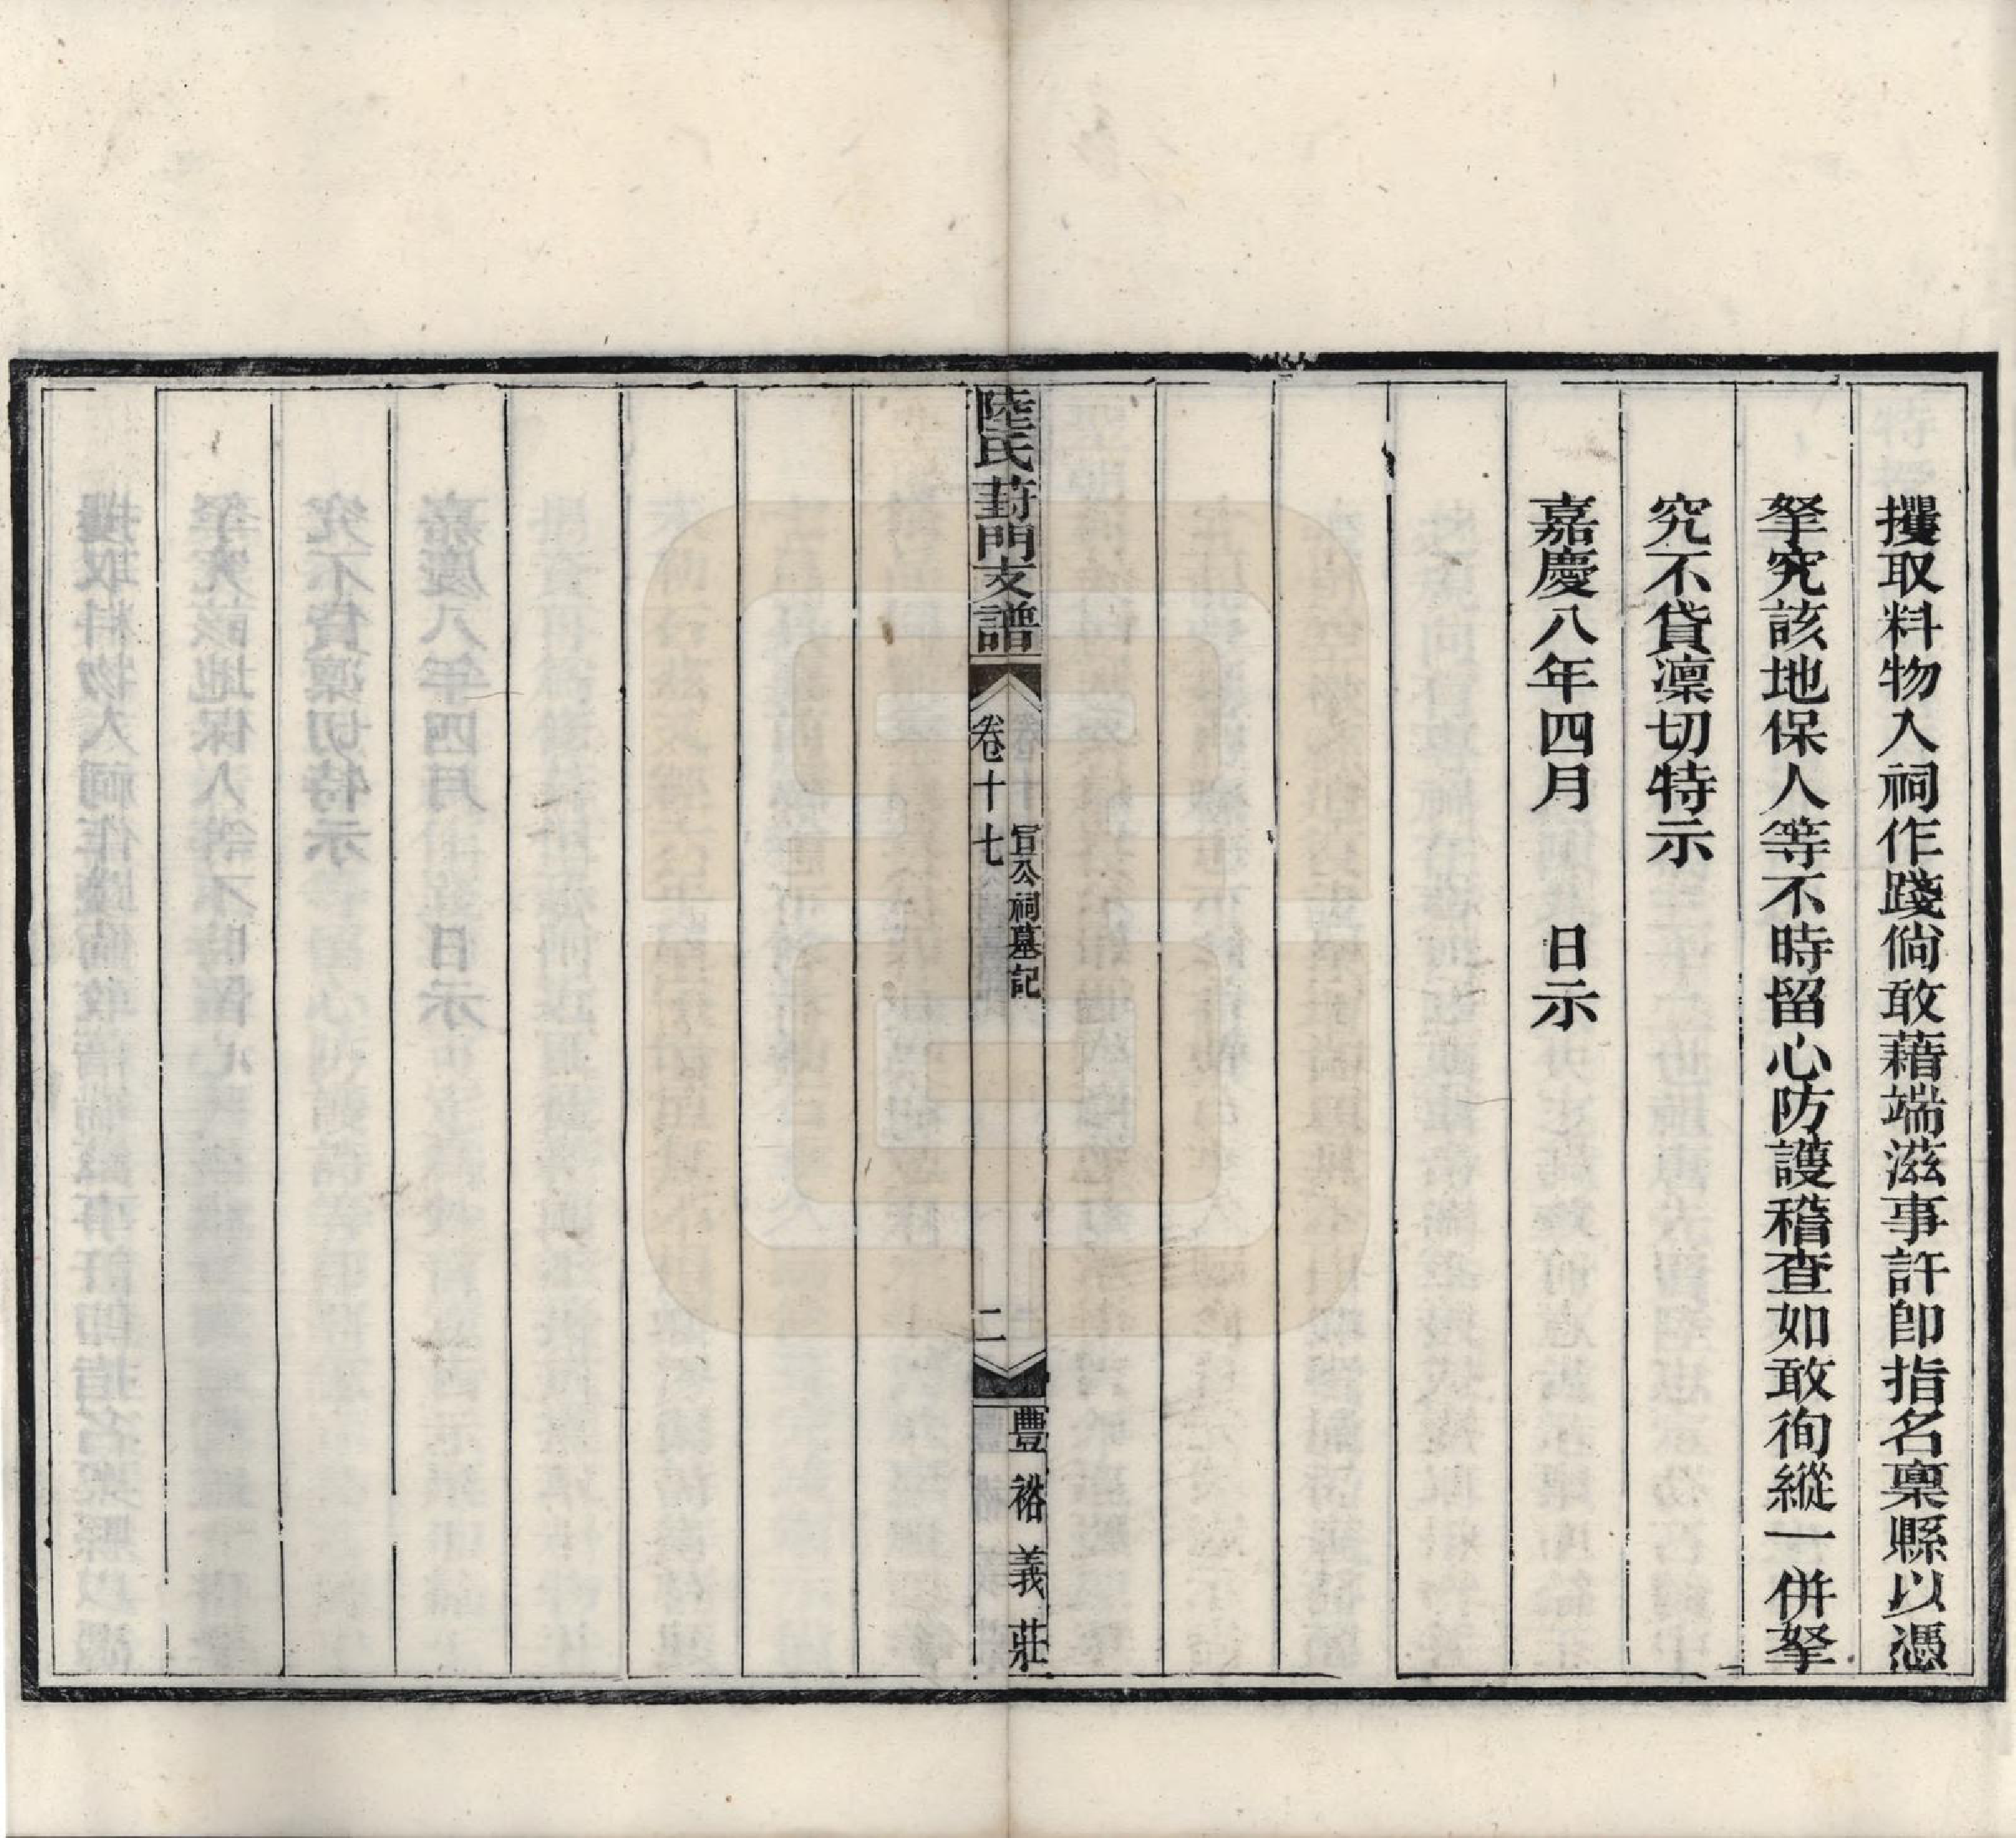 攫取料物入祠作踐倘敢藉端滋事許卽指名稟縣以憑
拏究該地保人等不時留心防護稽查如敢徇縱一併拏
究不貸凜切特示
嘉慶八年四月　　日示
陸氏葑門支譜
卷十七
宣公祠墓記
二
豐裕義莊